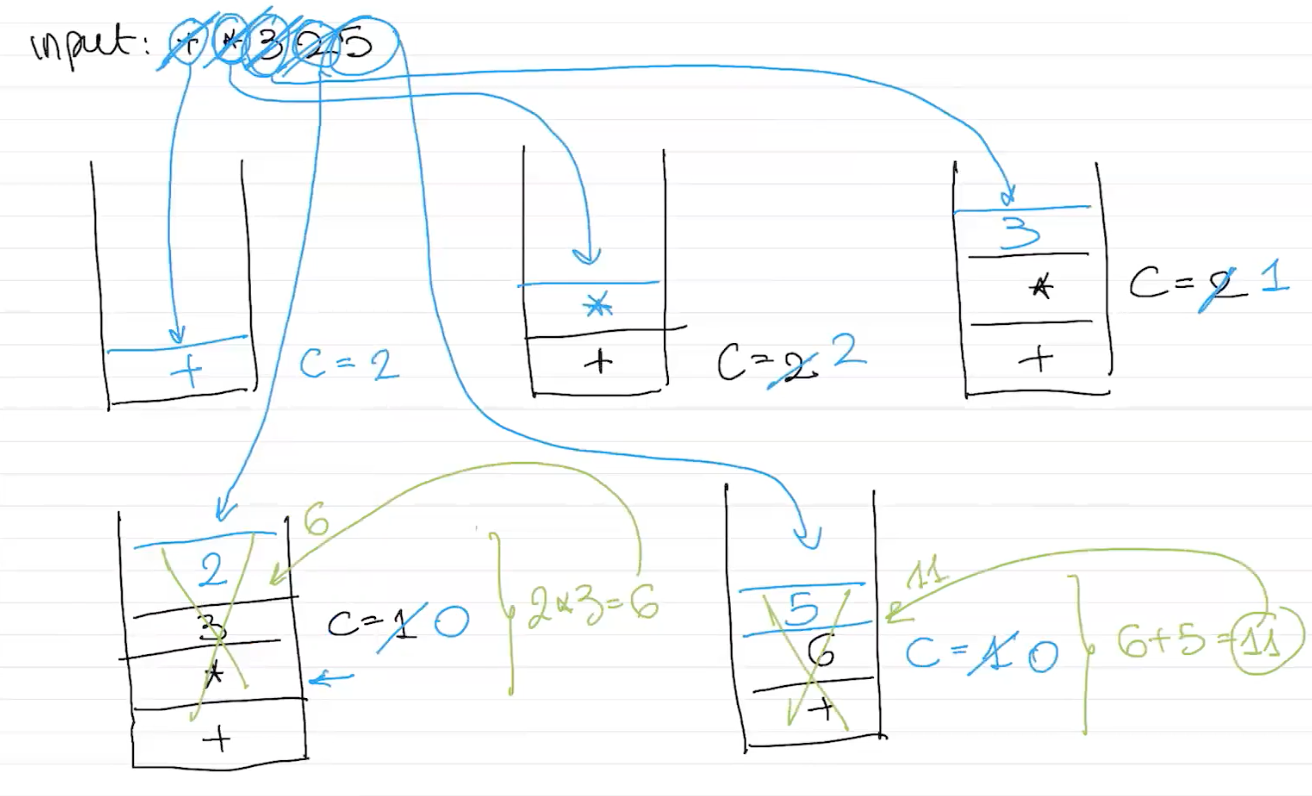 input: + * 3 2 5
+
C = 2
*
+
C = 2 2
3
*
+
C = 2 1
2
3
*
+
6
C = 1 0
2*3=6
5
6
+
11
C = 1 0
6+5=11